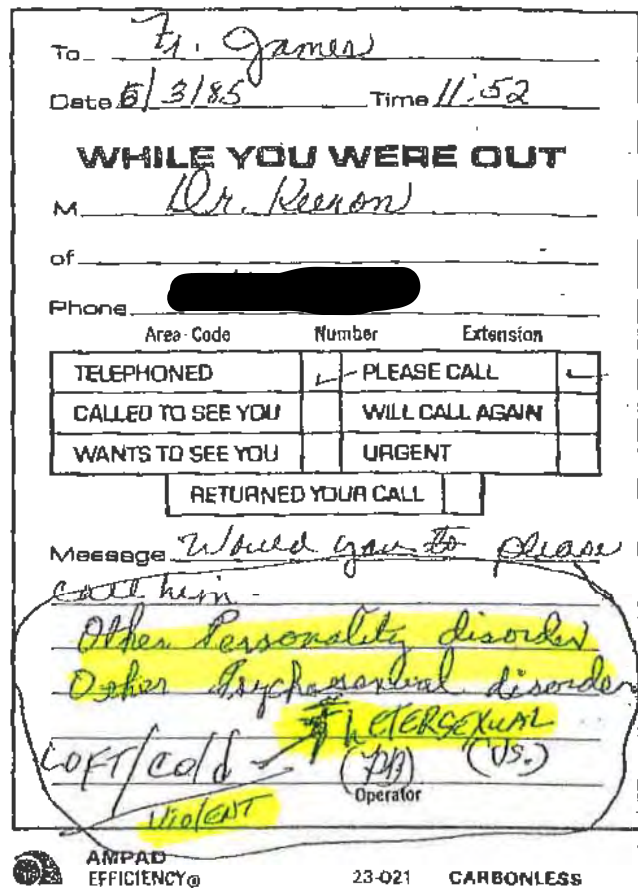 To Fr. James
Date 5/3/85 Time 11:52
WHILE YOU WERE OUT
M Dr.
of
Phone
Area Code Number Extension
TELEPHONED ✓ PLEASE CALL ✓
CALLED TO SEE YOU WILL CALL AGAIN
WANTS TO SEE YOU URGENT
RETURNED YOUR CALL
Message Would you to please
call him -
Other Personality disorder
Other Psychosexual disorder
HETERSEXUAL
LOFT/Cold (VS.)
Operator
VIOLENT
AMPAD
EFFICIENCY® 23-021 CARBONLESS